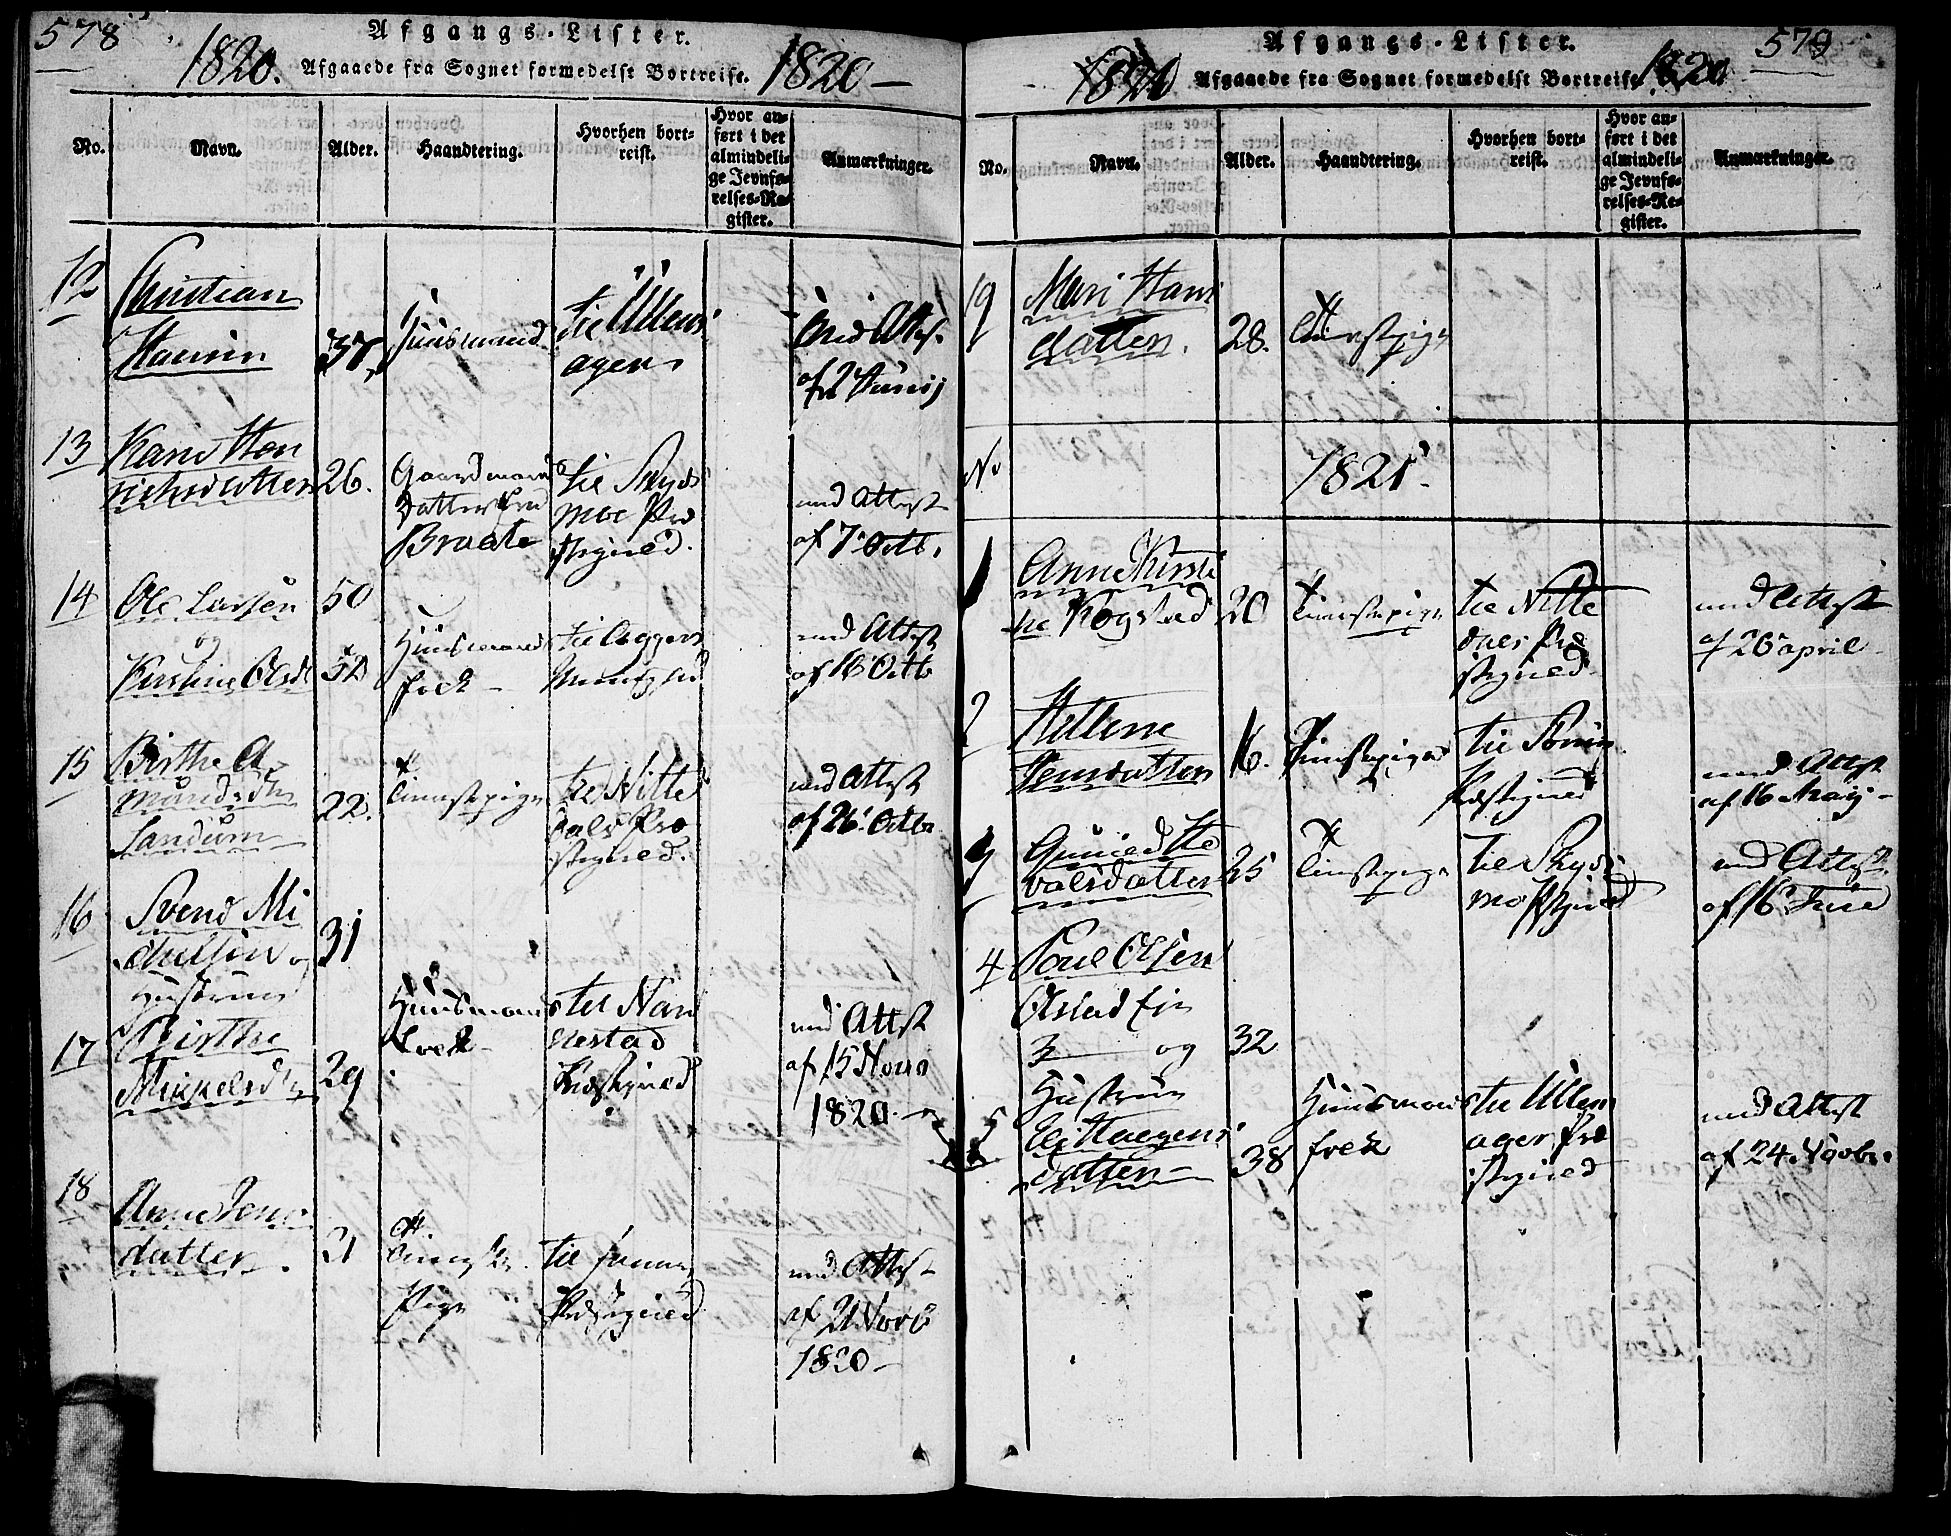 578
Afgangs-Lister.
1820. Afgaaede fra Sognet formedelst Bortreise. 1820 —
No.
Navn.
Alder.
Haandtering.
Hvorhen bort-
reist.
Hvor an-
ført i det
almindeli-
ge Jevnfø-
relses-Re-
gister.
Anmærkninger.
12
Christian
Hansen
37.
Huusmand
til Ullens
ager
med Attest
af 2 Junij
13
Kari
datter
26.
Gaardmands
Datter fra
Braate
til Skyds
moe Præ
stegield.
med Attest
af 7 Octb.
14
Ole Larsen
og
Kirstine Olsdt
50
52
Huusmands
folk —
til Aggers
med Attest
af 16 Octb
15
Birthe A
munds dtr
Sandum
22.
Tienstepige
til Nitte
dals Præ
stegield.
med Attest
af 26 Octbr
16
Svend Mi
chelsen og
Hustrue
31
17
Birthe
Mickelsdtr
29
Huusmands
folk
til Nan
nestad
Præstegield
med Attest
af 15 Novb
1820 —
18
Anne Jens
datter.
21
Tieneste
Pige
til
Præstegield
med Attest
af 21 Novb
1820 —
579
Afgangs-Lister.
1820 Afgaaede fra Sognet formedelst Bortreise. 1820
No.
Navn.
Alder.
Haandtering.
Hvorhen bort-
reist.
Hvor an-
ført i det
almindeli-
ge Jevnfø-
relses-Re-
gister.
Anmærkninger.
19
Mari Hans
datter.
28.
Tienstepige
No
1821.
1
Anne Kirsti
ne Kogstad
20
Tienstepige
til Nitte
dals Præ
stegield
med Attest
af 26 april
2
Hellene
Jensdatter
16.
Tienstepige
til Sørum
Præstegield
med Attest
af 16 Maij —
3
Guned
valsdatter
25
Tienstepige
til Skyds
moe Pstgield
med Attest
af 16 Junii
4
Poul Olsen
Olstad Eie
og
32
Hustrue
datter —
38
Huusmands
folk
til Ullens
ager Præ
stegield
med Attest
af 24. Novbr.